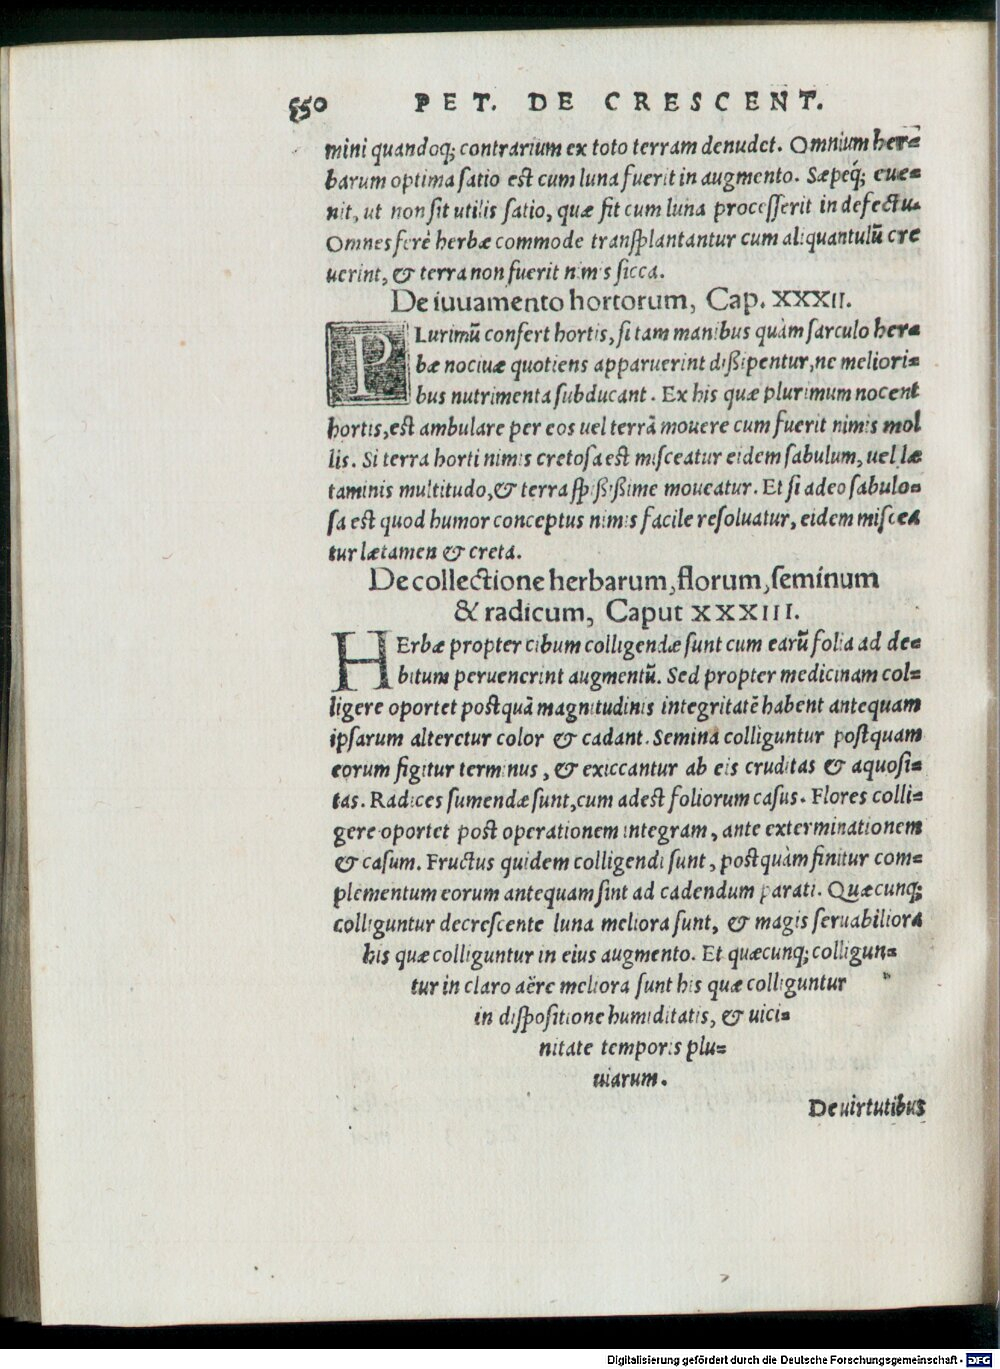 550 PET. DE CRESCENT.
mini quandoq; contrarium ex toto terram denudet. Omnium her=
barum optima satio est cum luna fuerit in augmento. Sæpeq́; eue=
nit, ut non sit utilis satio, quæ fit cum luna processerit in defectu.
Omnes ferè herbæ commode transplantantur cum aliquantulũ cre
uerint, & terra non fuerit nimis sicca.
De iuuamento hortorum, Cap. XXXII.
PLurimũ confert hortis, si tam manibus quàm sarculo her=
bæ nociuæ quotiens apparuerint dißipentur, ne meliori=
bus nutrimenta subducant. Ex his quæ plurimum nocent
hortis, est ambulare per eos uel terrã mouere cum fuerit nimis mol
lis. Si terra horti nimis cretosa est misceatur eidem sabulum, uel læ
taminis multitudo, & terra spißißime moueatur. Et si adeo sabulo=
sa est quod humor conceptus nimis facile resoluatur, eidem miscea
tur lætamen & creta.
De collectione herbarum, florum, seminum
& radicum, Caput XXXIII.
HErbæ propter cibum colligendæ sunt cum earũ folia ad de=
bitum peruenerint augmentũ. Sed propter medicinam col=
ligere oportet postquã magnitudinis integritatẽ habent antequam
ipsarum alteretur color & cadant. Semina colliguntur postquam
eorum figitur terminus, & exiccantur ab eis cruditas & aquosi=
tas. Radices sumendæ sunt, cum adest foliorum casus. Flores colli=
gere oportet post operationem integram, ante exterminationem
& casum. Fructus quidem colligendi sunt, postquàm finitur com=
plementum eorum antequam sint ad cadendum parati. Quæcunq;
colliguntur decrescente luna meliora sunt, & magis seruabiliora
his quæ colliguntur in eius augmento. Et quæcunq; colligun=
tur in claro aëre meliora sunt his quæ colliguntur
in dispositione humiditatis, & uici=
nitate temporis plu=
uiarum.
De uirtutibus
Digitalisierung gefördert durch die Deutsche Forschungsgemeinschaft - DFG